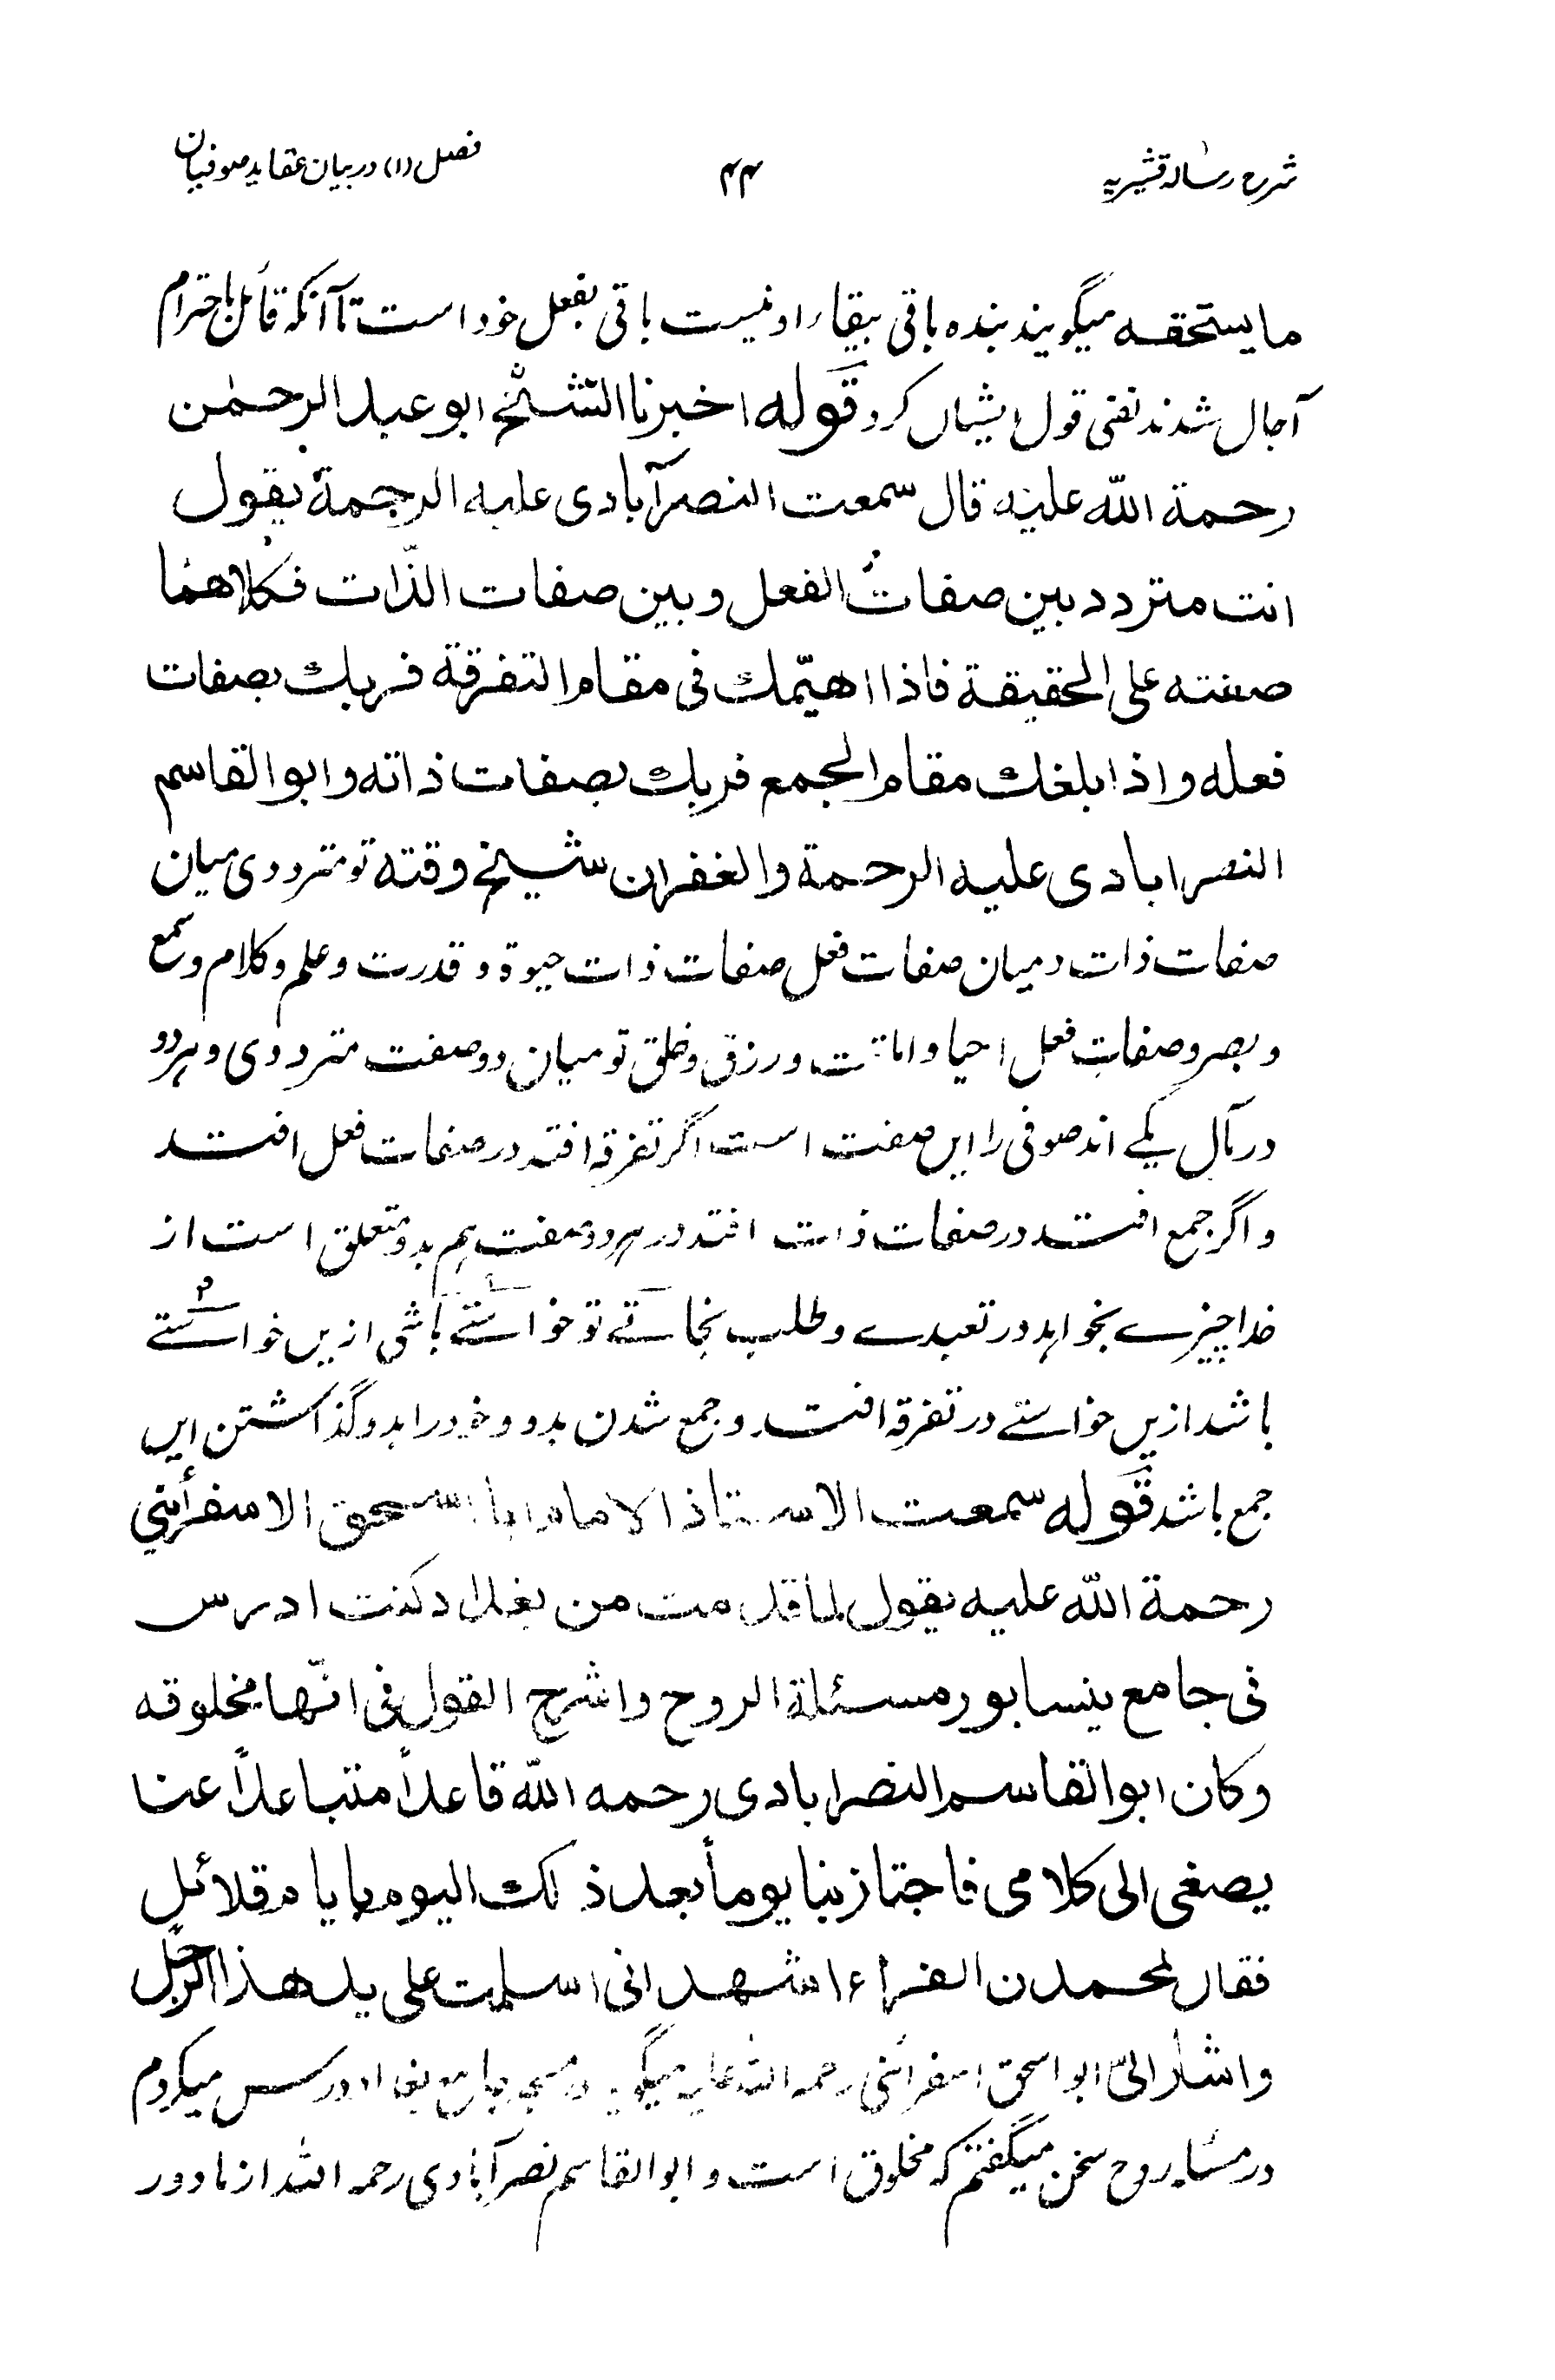 شرح رسالہ قشیریہ ۴۴ فصل (۱) در بیان عقاید صوفیان
ما یستحقه میگویند بنده باقی ببقاء او نیست باقی بفعل خود است تا آنکه قائل باحترام
آجال شدند نفی قول ایشاں کرد قوله اخبرنا الشیخ ابو عبد الرحمٰن
رحمة اللّه علیه قال سمعت النصرآبادی علیه الرحمة یقول
انت متردد بین صفات الفعل و بین صفات الذّات فکلاهما
صفته علی الحقیقة فاذا اهیّمك فی مقام التفرقة قربك بصفات
فعله و اذا بلغك مقام الجمع قربك بصفات ذاته و ابو القاسم
النصرابادی علیه الرحمة والغفران شیخ وقته تو مترددی میان
صفات ذات و میان صفات فعل صفات ذات حیوة و قدرت و علم و کلام و سمع
و بصر و صفات فعل احیا و اماتت و رزق و خلق تو میان دو صفت مترددی و ہر دو
در مآل یکے اند صوفی را ایں صفت است اگر تفرقہ افتد در صفات فعل افتد
و اگر جمع افتد در صفات ذات افتد در ہر دو صفت ہم بدو متعلق است از
خدا چیزے بخواہد در تعبدے و طلب نجاتے تو خواستے باشی ازیں خواستے
باشد ازیں خواستے در تفرقہ افتد و جمع شدن بدو و خود را بدو گذاشتن ایں
جمع باشد قوله سمعت الاستاذ الامام ابا اسحق الاسفرأینی
رحمة اللّه علیه یقول لما قدمت من بغداد کنت ادرس
فی جامع نیسابور مسئلة الروح واشرح القول فی انّها مخلوقه
وکان ابو القاسم النصرابادی رحمه اللّه قاعداً متباعداً عنا
یصغی الی کلامی فاجتاز بنا یوماً بعد ذلك الیوم بایام قلائل
فقال لمحمدن الفراء اشهد انی اسلمت علی ید هذا الرجل
و اشار الیّ ابو اسحق اسفرائنی رحمہ اللہ علیہ میگوید در مسجد جامع بغداد درس میکردم
در مسئلہ روح سخن میگفتم کہ مخلوق است و ابو القاسم نصرآبادی رحمہ اللہ از ما دور